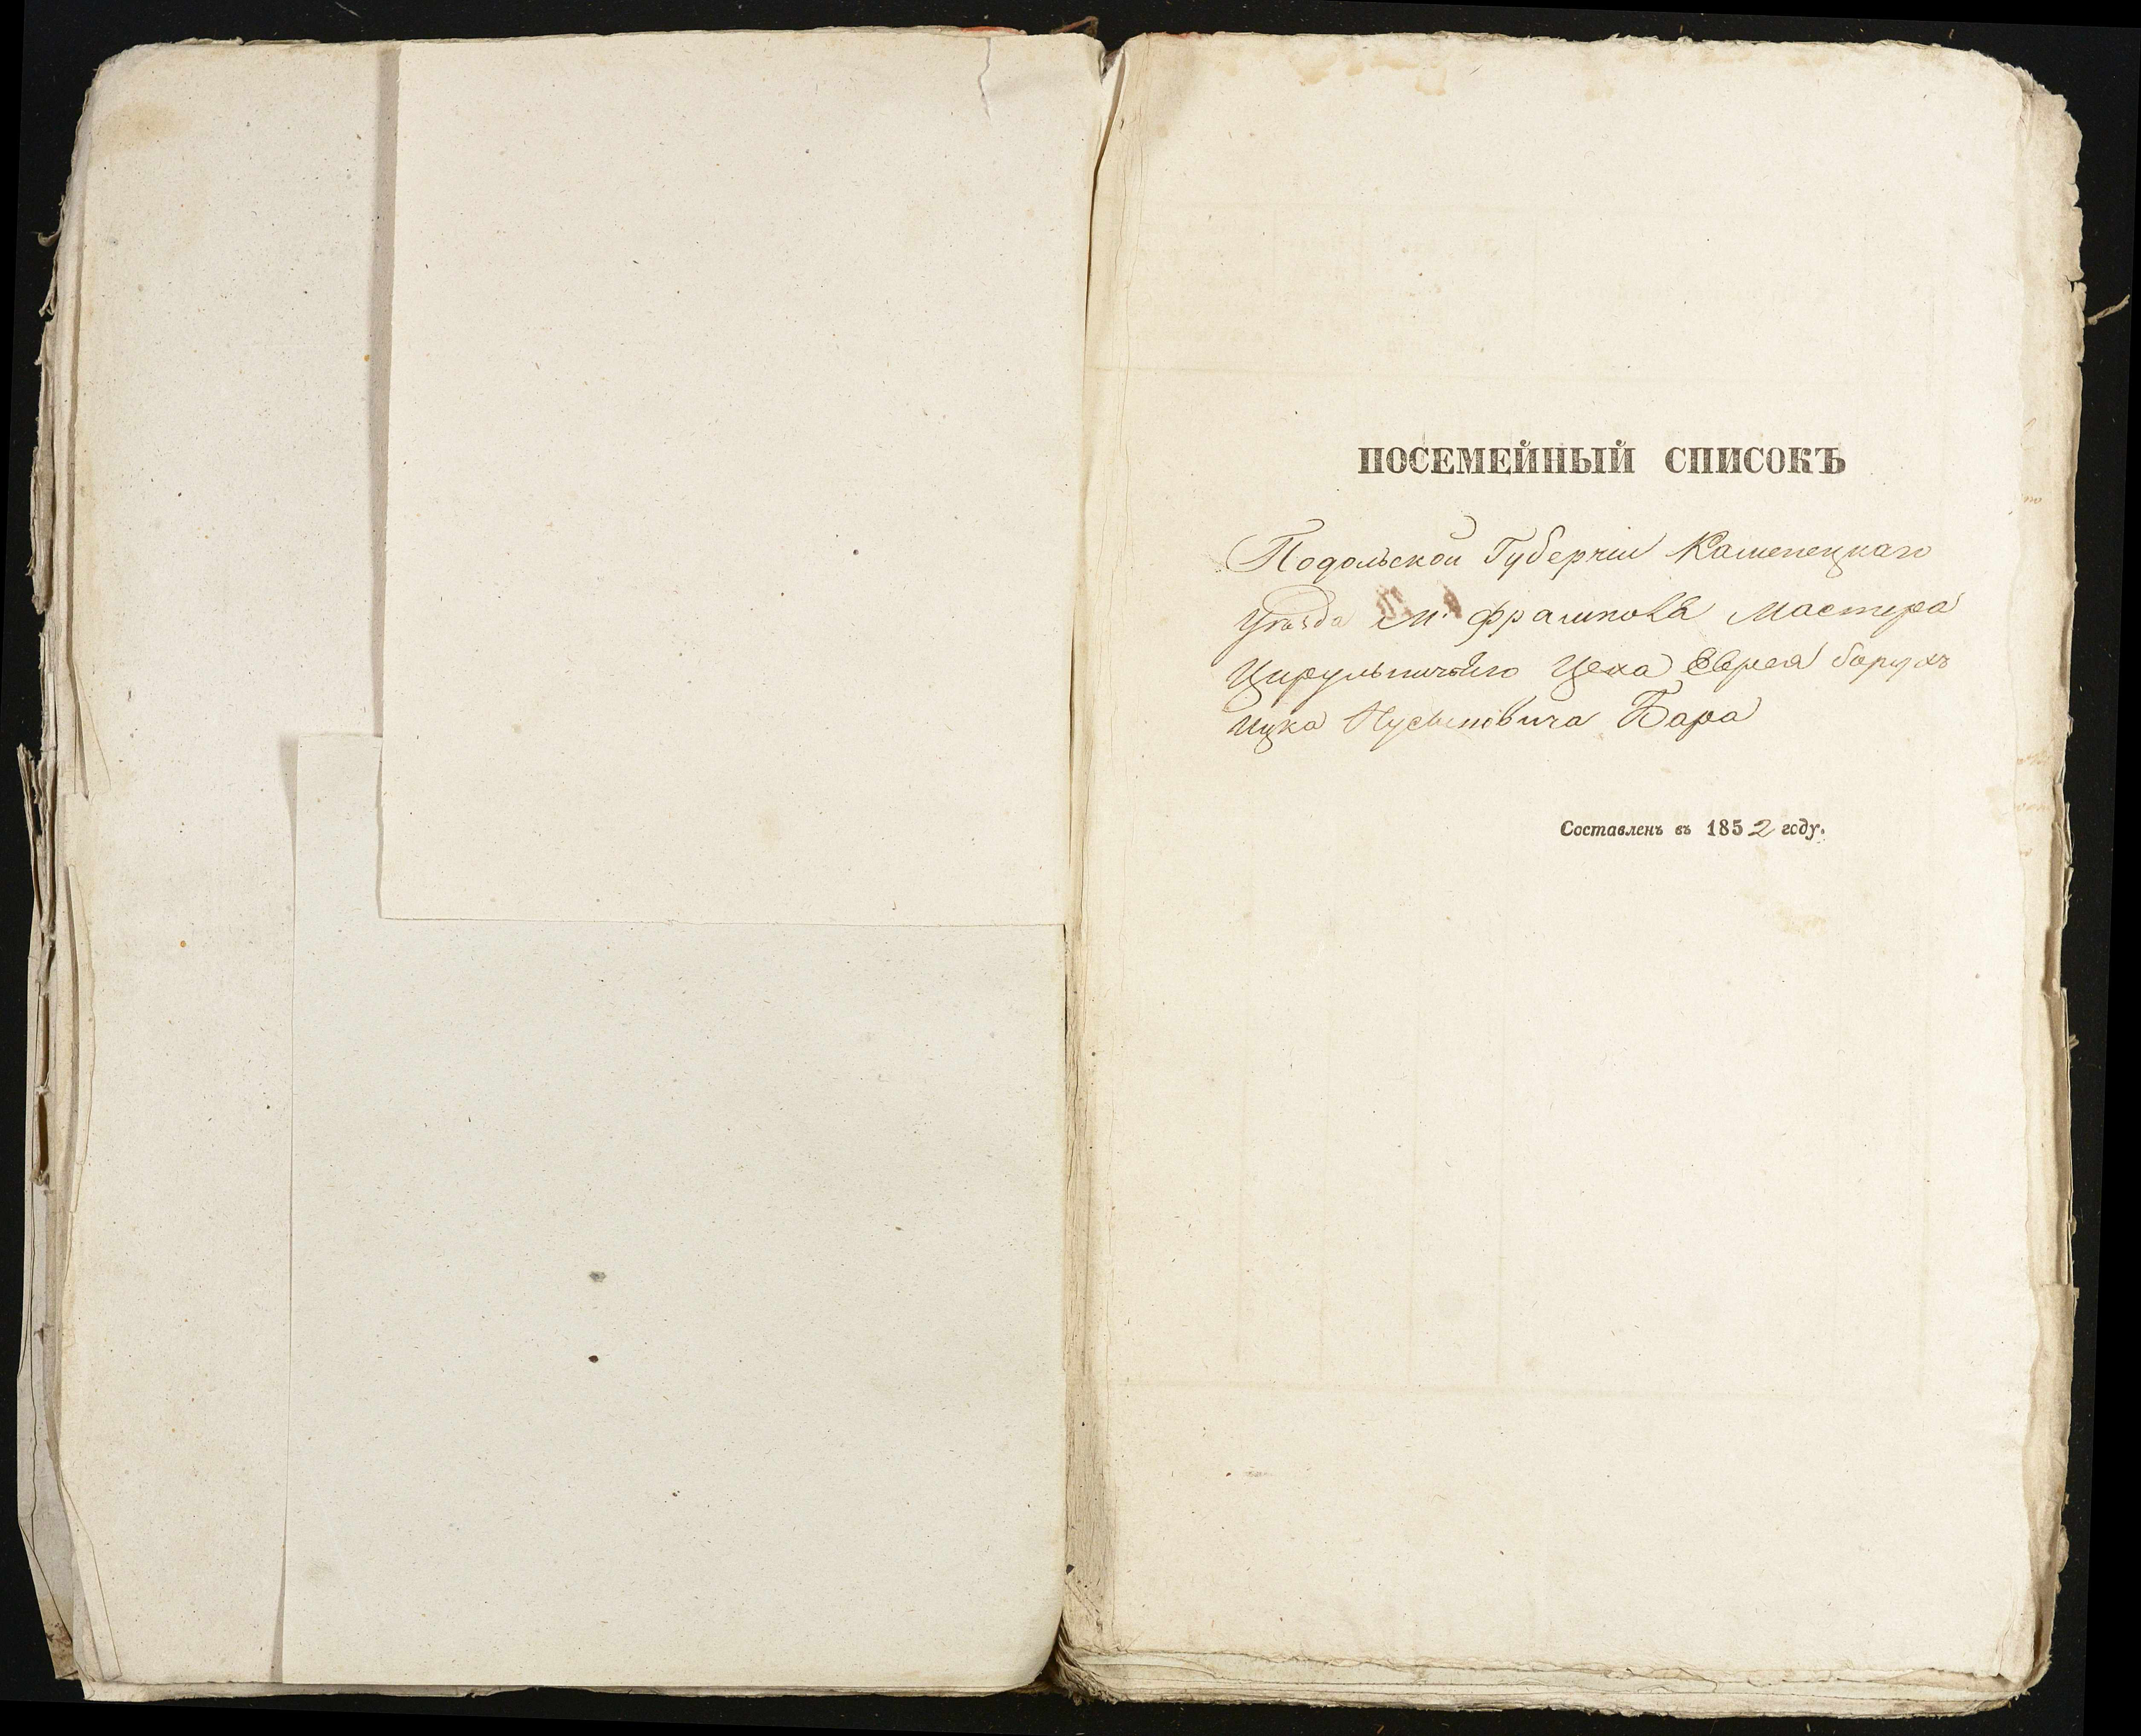 ПОСЕМЕЙНЫЙ СПИСОКЪ
Подольской Губерніи Каменецкаго
Уѣзда м. Фрампола Мастера
Цирульничьяго Цеха Еврея Борухъ
Ицка Бара
Составленъ въ 1852 году.